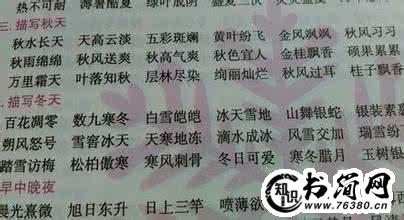 热不可耐 薄暑酷夏 绿叶成阴 盛夏三伏
三.描写秋天
秋水长天 天高云淡 五彩斑斓 黄叶纷飞 金风飒飒 秋风习习
秋雨绵绵 秋风送爽 秋高气爽 秋色宜人 金桂飘香 硕果累累
万里霜天 叶落知秋 层林尽染 绚丽灿烂 秋风过耳 桂子飘香
.描写冬天
百花凋零 数九寒冬 白雪皑皑 冰天雪地 山舞银蛇 银装素裹
朔风怒号 雪窖冰天 天寒地冻 滴水成冰 风雪交加 瑞雪纷
踏雪访梅 松柏傲寒 寒风刺骨 冬日可爱 寒冬腊月 玉树银
早中晚夜
晨光熹微 旭日东升 日上三竿 喷薄欲
知识 书简网
www.76380.cn